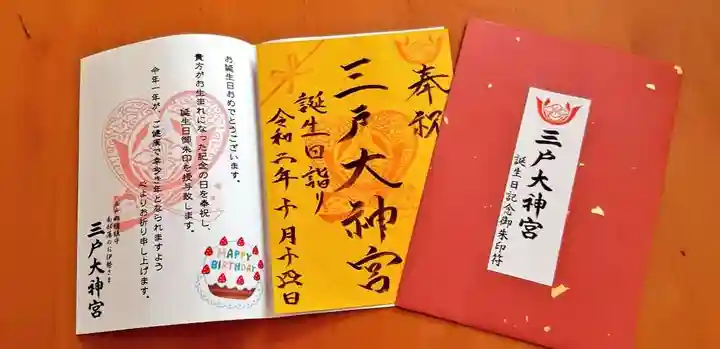 お誕生日おめでとうございます。
貴方がお生まれになった記念の日を奉祝し、
誕生日御朱印を授与致します。
今年一年が、ご健康で幸多き年となられますよう
心よりお祈り申し上げます。
三戸大神宮
HAPPY
BIRTHDAY
奉祝
三戸大神宮
誕生日詣り
令和二年十月十四日
三戸大神宮
誕生日記念御朱印符